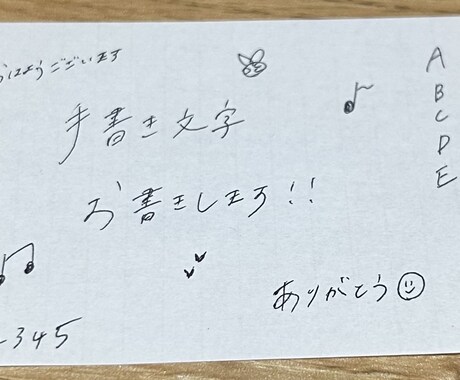 おはようございます
手書き文字
お書きします!!
ありがとう
345
A
B
C
D
E